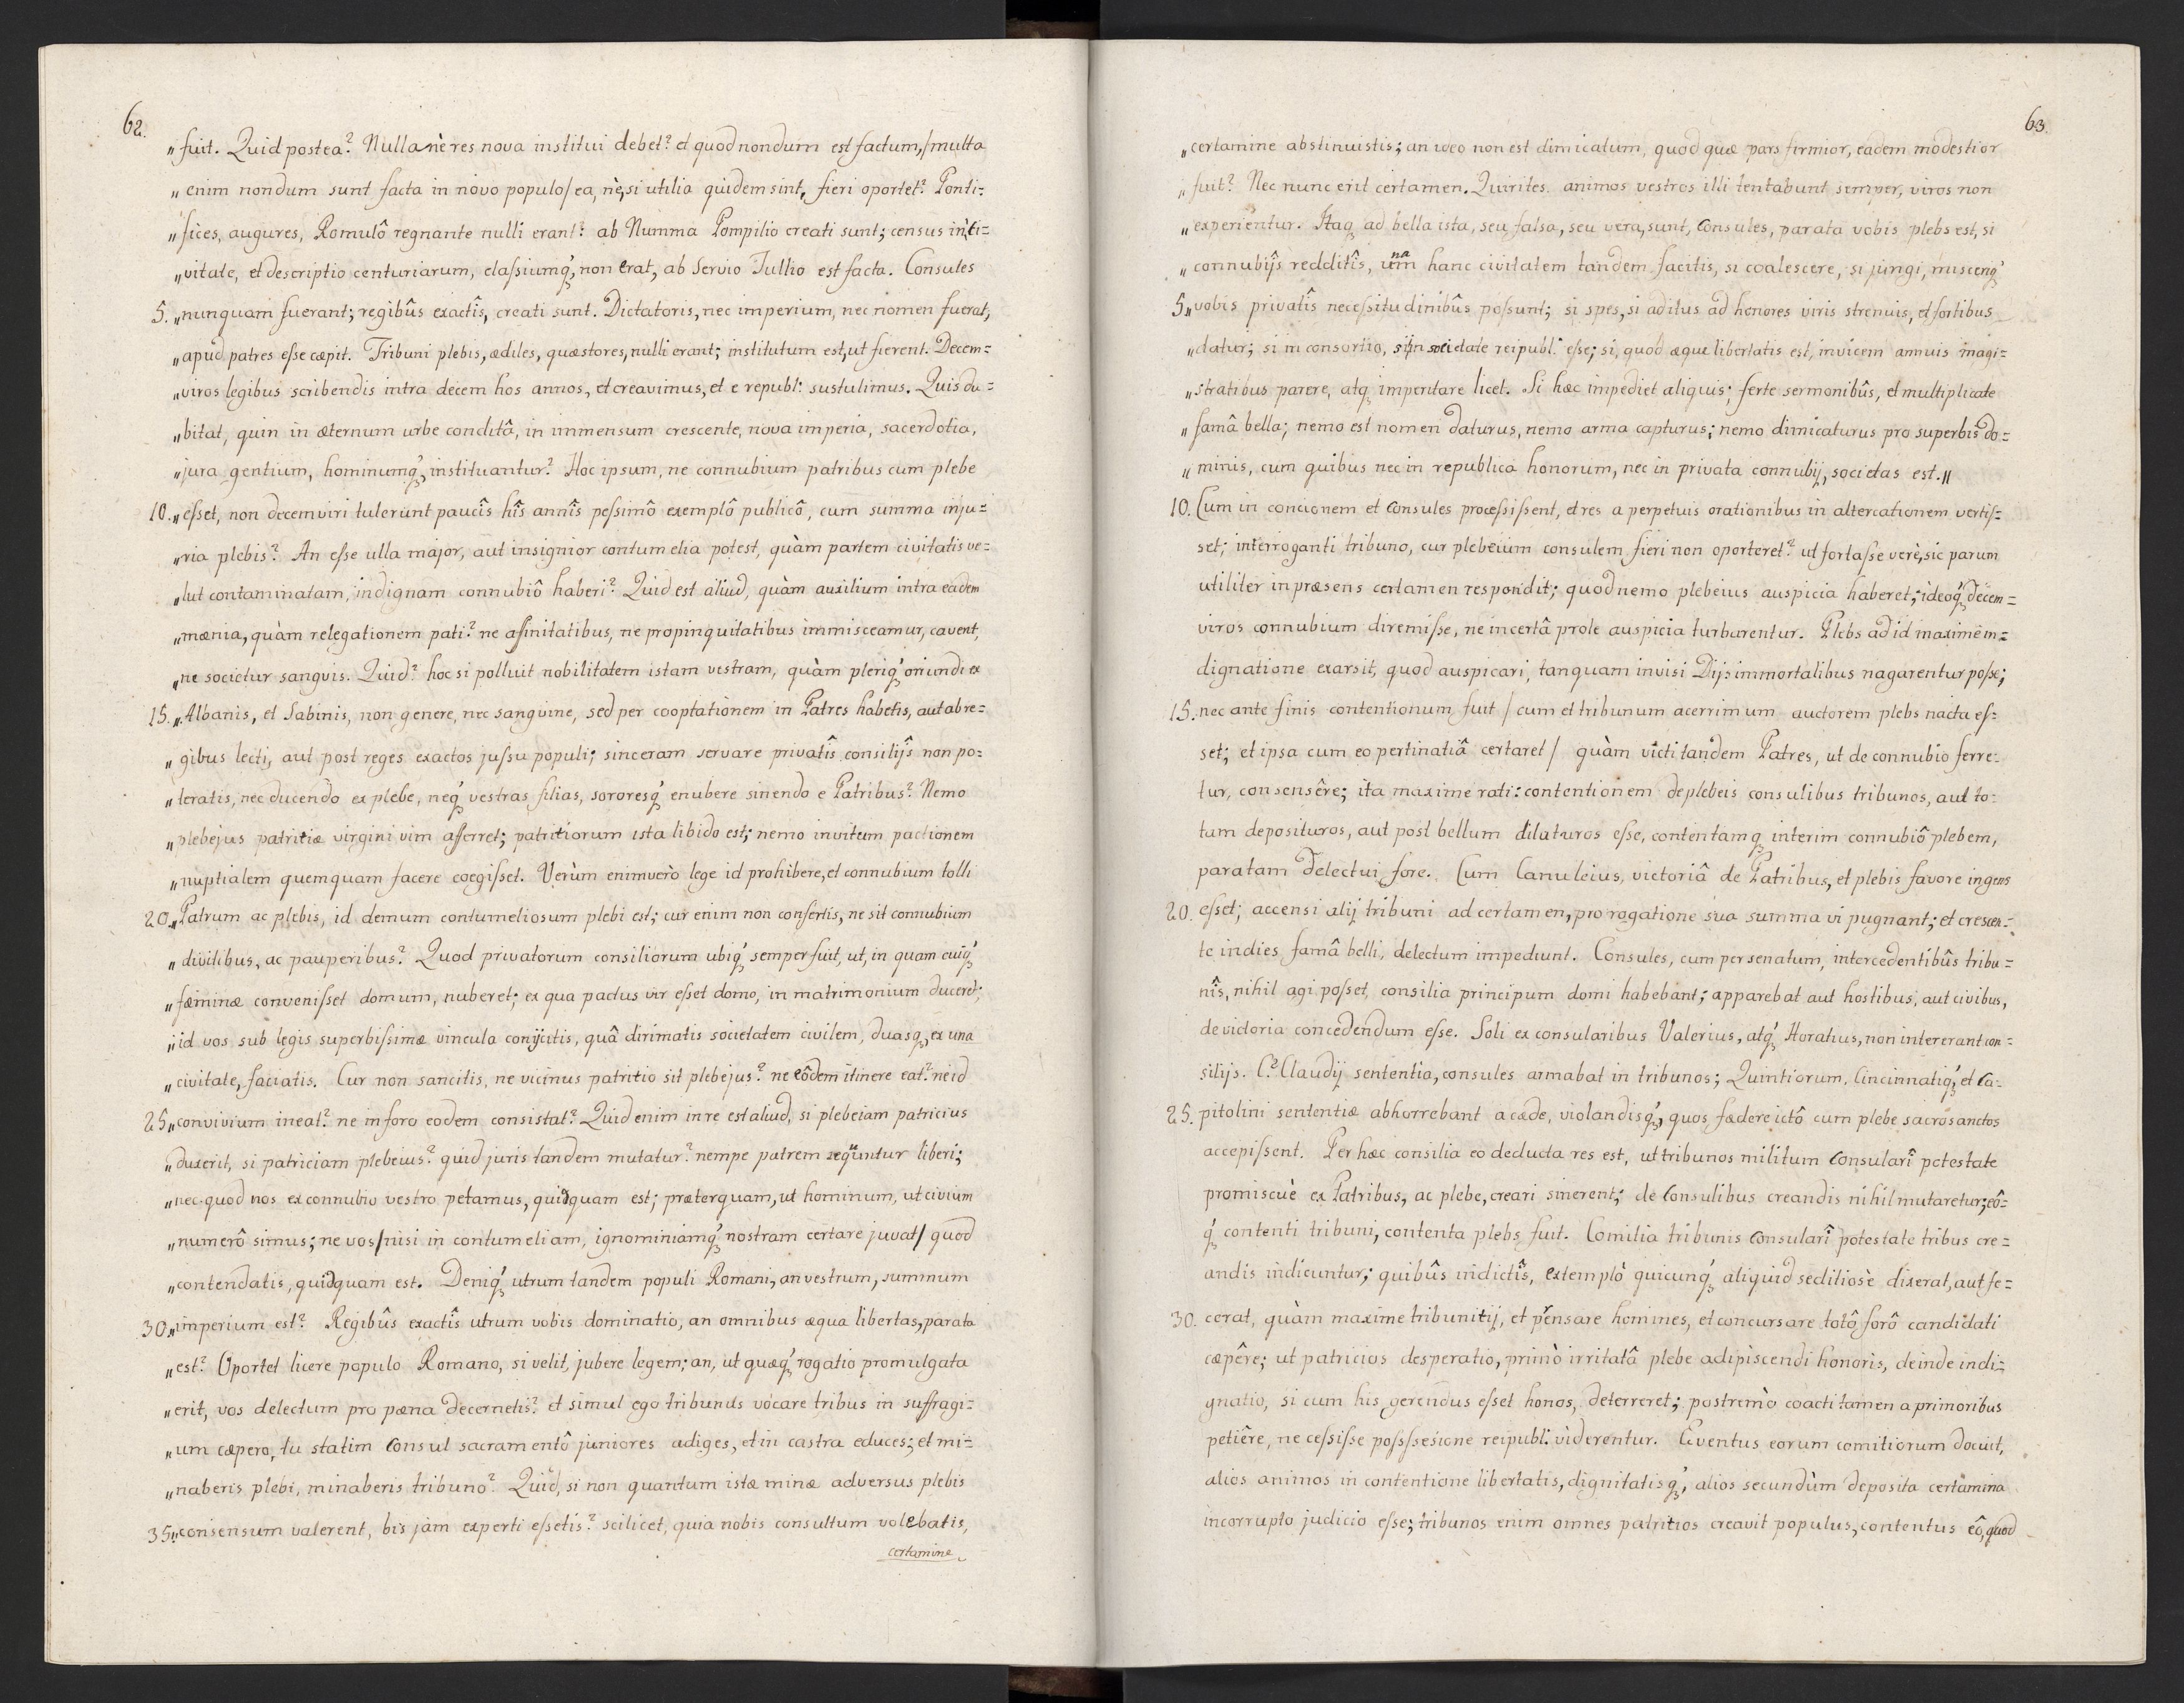 62.
„fuit. Quid postea? Nullanè res nova institui debet? et quod nondum est factum,/multa
„enim nondum sunt facta in novo populo/ea, nè, si utilia quidem sint, fieri oportet? Ponti=
„fices, augures, Romulô regnante nulli erant: ab Numma Pompilio creati sunt; census in ci=
„vitate, et descriptio centuriarum, classiumq́;, non erat, ab Servio Tullio est facta. Consules
5. „nunquam fuerant; regibûs exactîs, creati sunt. Dictatoris, nec imperium, nec nomen fuerat,
„apud patres esse cæpit. Tribuni plebis, ædiles, quæstores, nulli erant; institutum est, ut fierent. Decem=
„viros legibus scribendis intra decem hos annos, et creavimus, et e republ: sustulimus. Quis du=
„bitat, quin in æternum urbe conditâ, in immensum crescente, nova imperia, sacerdotia,
„jura gentium, hominumq́;, instituantur? Hoc ipsum, ne connubium patribus cum plebe
10. „esset, non decemviri tulerunt paucîs hîs annîs pessimô exemplô publicô, cum summa inju=
„ria plebis? An esse ulla major, aut insignior contumelia potest, quàm partem civitatis ve=
„lut contaminatam, indignam connubiô haberi? Quid est aliud, quàm auxilium intra eadem
„mænia, quàm relegationem pati? ne affinitatibus, ne propinquitatibus immisceamur, cavent,
„ne societur sanguis. Quid? hoc si polluit nobilitatem istam vestram, quàm pleriq́; oriundi ex
15. „Albanis, et Sabinis, non genere, nec sanguine, sed per cooptationem in Patres habetis, aut ab re=
„gibus lecti, aut post reges exactos jussu populi; sinceram servare privatîs consilijs non po=
„teratis, nec ducendo ex plebe, neq́; vestras filias, sororesq́; enubere sinendo e Patribus? Nemo
„plebejus patritiæ virgini vim afferret; patritiorum ista libido est; nemo invitum pactionem
„nuptialem quemquam facere coegisset. Verùm enimverò lege id prohibere, et connubium tolli
20. „Patrum ac plebis, id demum contumeliosum plebi est; cur enim non confertis, ne sit connubium
„divitibus, ac pauperibus? Quod privatorum consiliorum ubiq́; semper fuit, ut, in quam cuiq́;
„fæminæ convenisset domum, nuberet; ex qua pactus vir esset domo, in matrimonium duceret;
„id vos sub legis superbissimæ vincula conijcitis, quâ dirimatis societatem civilem, duasq;, ex una
„civitate, faciatis. Cur non sancitis, ne vicinus patritio sit plebejus? ne eôdem itinere eat? ne id
25 „convivium ineat? ne in foro eodem consistat? Quid enim in re est aliud, si plebeiam patricius
„duxerit, si patriciam plebeius? quid juris tandem mutatur? nempe patrem sequntur liberi;
„nec quod nos ex connubio vestro petamus, quidquam est; præterquam, ut hominum, ut civium
„numerô simus; ne vos/nisi in contumeliam, ignominiamq́; nostram certare juvat/ quod
„contendatis, quidquam est. Deniq́; utrum tandem populi Romani, an vestrum, summum
30 „imperium est? Regibûs exactîs utrum vobis dominatio, an omnibus æqua libertas, parata
„est? Oportet licere populo Romano, si velit, jubere legem; an, ut quæq́; rogatio promulgata
„erit, vos delectum pro pæna decernetis? et simul ego tribunus vocare tribus in suffragi=
„um cæpero, tu statim Consul sacramentô juniores adiges, et in castra educes; et mi=
„naberis plebi, minaberis tribuno? Quid, si non quantum istæ minæ adversus plebis
35 „consensum valerent, bis jam experti essetis? scilicet, quia nobis consultum volebatis,
certamine
63.
„certamine abstinuistis; an ideo non est dimicatum, quod quæ pars firmior, eadem modestior
„fuit? Nec nunc erit certamen. Quirites. animos vestros illi tentabunt semper, viros non
„experientur. Itaq; ad bella ista, seu falsa, seu vera, sunt, Consules, parata vobis plebs est, si
„connubijs redditîs, unam hanc civitatem tandem facitis, si coalescere, si jungi, misceriq́;
5 „vobis privatîs necessitudinibûs possunt; si spes, si aditus ad honores viris strenuis, et fortibus
„datur; si in consortio, si in societate reipubl: esse; si, quod æquæ libertatis est, invicem annuis magi=
„stratibus parere, atq; imperitare licet. Si hæc impediet aliquis; ferte sermonibûs, et multiplicate
„famâ bella; nemo est nomen daturus, nemo arma capturus; nemo dimicaturus pro superbis do=
„minis, cum quibus nec in republica honorum, nec in privata connubij, societas est.„
10. Cum in concionem et Consules processissent, et res a perpetuis orationibus in altercationem vertis=
set; interroganti tribuno, cur plebeium consulem fieri non oporteret? ut fortasse verè, sic parum
utiliter in præsens certamen respondit; quod nemo plebeius auspicia haberet; ideoq́; decem=
viros connubium diremisse, ne incertâ prole auspicia turbarentur. Plebs ad id maximè in=
dignatione exarsit, quod auspicari, tanquam invisi Dijs immortalibus nagarentur posse;
15. nec ante finis contentionum fuit /cum et tribunum acerrimum auctorem plebs nacta es=
set; et ipsa cum eo pertinatiâ certaret/ quàm victi tandem Patres, ut de connubio ferre=
tur, consensêre; ita maxime rati: contentionem de plebeis consulibus tribunos, aut to=
tam deposituros, aut post bellum dilaturos esse, contentamq; interim connubiô plebem,
paratam delectui fore. Cum Canuleius, victoriâ de Patribus, et plebis favore ingens
20. esset; accensi alij tribuni ad certamen, pro rogatione sua summa vi pugnant; et crescen=
te indies famâ belli, delectum impediunt. Consules, cum per senatum, intercedentibûs tribu=
nîs, nihil agi posset, consilia principum domi habebant; apparebat aut hostibus, aut civibus,
de victoria concedendum esse. Soli ex consularibus Valerius, atq́; Horatius, non intererant con=
silijs. C? Claudij sententia, consules armabat in tribunos; Quintiorum, Cincinnatiq́;, et Ca=
25. pitolini sententiæ abhorrebant a cæde, violandisq́;, quos fædere ictô cum plebe sacrosanctos
accepissent. Per hæc consilia eò deducta res est, ut tribunos militum Consularî potestate
promiscuè ex Patribus, ac plebe, creari sinerent; de Consulibus creandis nihil mutaretur; eô=
q́; contenti tribuni, contenta plebs fuit. Comitia tribunis Consularî potestate tribus cre=
andis indicuntur; quibûs indictîs, extemplò quicunq́; aliquid seditiosè dixerat, aut fe=
30. cerat, quàm maxime tribunitij, et prensare homines, et concursare totô forô candidati
cæpêre; ut patricios desperatio, primò irritatâ plebe adipiscendi honoris, deinde indi=
gnatio, si cum his gerendus esset honos, deterreret; postremò coacti tamen a primoribus
petiêre, ne cessisse posssesione reipubl: viderentur. Eventus eorum comitiorum docuit,
alios animos in contentione libertatis, dignitatisq́;, alios secundùm deposita certamina
incorrupto judicio esse; tribunos enim omnes patritios creavit populus, contentus eô, quod